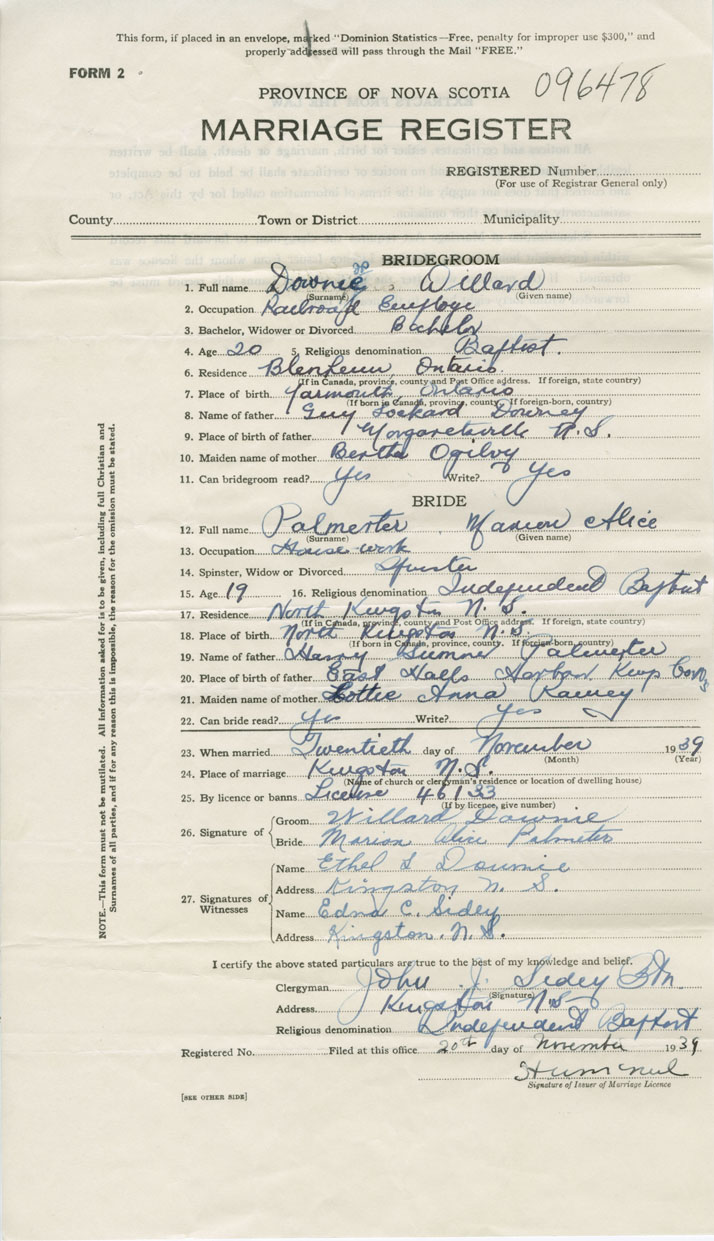 This form, if placed in an envelope, marked "Dominion Statistics—Free, penalty for improper use $300," and
properly addressed will pass through the Mail "FREE."
FORM 2
PROVINCE OF NOVA SCOTIA 096478
MARRIAGE REGISTER
REGISTERED Number
(For use of Registrar General only)
County Town or District Municipality
BRIDEGROOM
1. Full name Downie, Willard
(Surname) (Given name)
2. Occupation Railroad Employe
3. Bachelor, Widower or Divorced Bachelor
4. Age 20 5. Religious denomination Baptist.
6. Residence Blenheim Ontario
(If in Canada, province, county and Post Office address. If foreign, state country)
7. Place of birth Yarmouth, Ontario
(If born in Canada, province, county. If foreign-born, country)
8. Name of father Guy Lockard Downey
9. Place of birth of father Margaretsville N.S.
10. Maiden name of mother Bertha Ogilvy
11. Can bridegroom read? Yes Write? Yes
BRIDE
12. Full name Palmerter, Marion Alice
(Surname) (Given name)
13. Occupation House work
14. Spinster, Widow or Divorced Spinster
15. Age 19 16. Religious denomination Independent Baptist
17. Residence North Kingston N.S.
(If in Canada, province, county and Post Office address. If foreign, state country)
18. Place of birth North Kingston N.S.
(If born in Canada, province, county. If foreign-born, country)
19. Name of father Harry Sumner Palmerter
20. Place of birth of father East Halls Harbor Kings
21. Maiden name of mother Lottie Anna Ramey
22. Can bride read? Yes Write? Yes
23. When married Twentieth day of November 1939
(Month) (Year)
24. Place of marriage Kingston N.S.
(Name of church or clergyman's residence or location of dwelling house)
25. By licence or banns License 46133
(If by licence, give number)
26. Signature of
Groom Willard Downie
Bride Marion Alice Palmeter
27. Signatures of Witnesses
Name Ethel S Downie
Address Kingston N. S.
Name Edna C. Sidey
Address Kingston, N.S.
I certify the above stated particulars are true to the best of my knowledge and belief.
Clergyman John J. Sidey
(Signature)
Address Kingston N.S.
Religious denomination Independent Baptist
Registered No. Filed at this office 20th day of November 1939
Signature of Issuer of Marriage Licence
[SEE OTHER SIDE]
NOTE.—This form must not be mutilated. All information asked for is to be given, including full Christian and
Surnames of all parties, and if for any reason this is impossible, the reason for the omission must be stated.